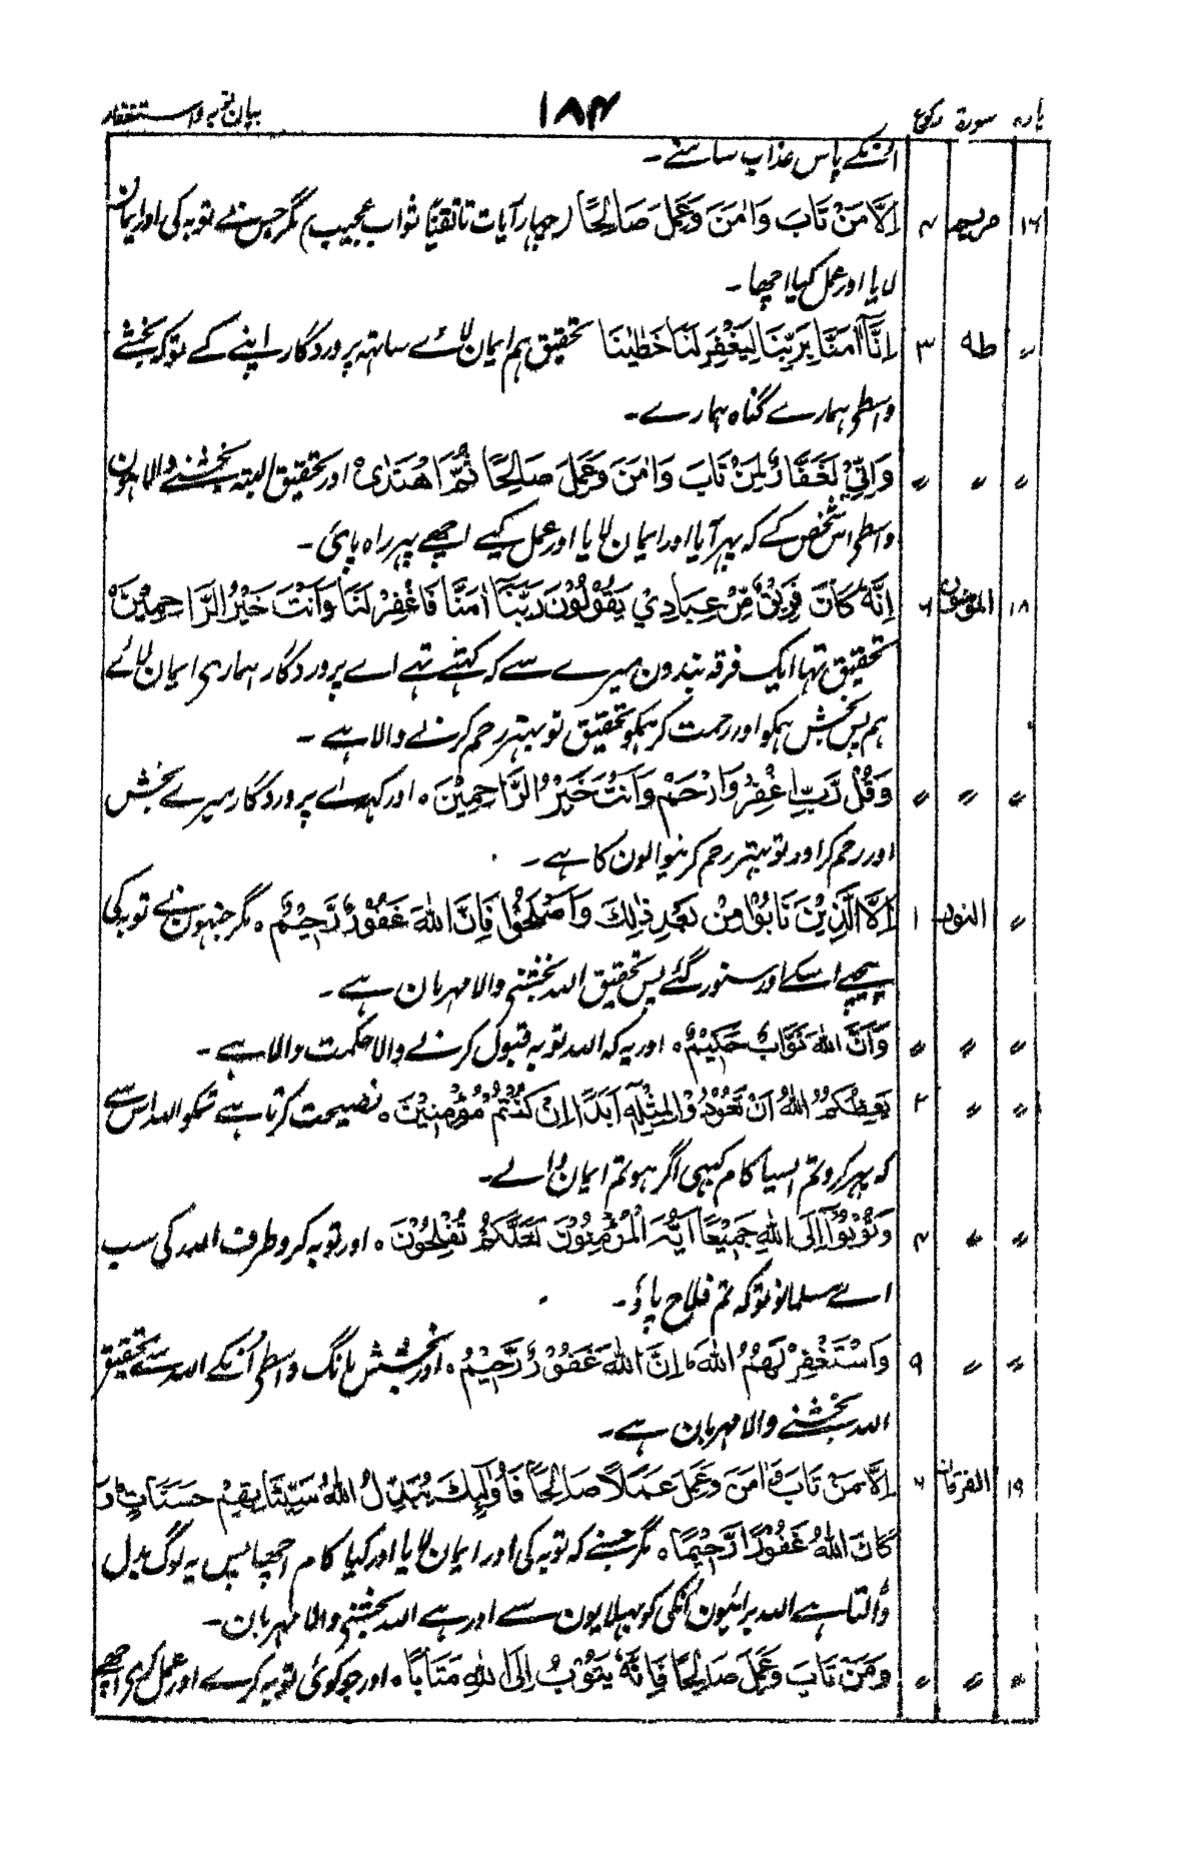 پارہ سورۃ رکوع ۱۸۴ بیان توبہ واستغفار
انکے پاس عذاب سامنے۔
۱۶ مریم ۴ اِلَّا مَنْ تَابَ وَاٰمَنَ وَعَمِلَ صَالِحًا (چہار آیات تا تقیًا ثواب عجیب) مگر جس نے توبہ کی اور ایمان
لایا اور عمل کیا اچھا۔
〃 طه ۳ اِنَّآ اٰمَنَّا بِرَبِّنَا لِيَغْفِرَ لَنَا خَطٰيٰنَا تحقیق ہم ایمان لائے ساتہہ پروردگار اپنے کے توکہ بخشے
واسطی ہمارے گناہ ہمارے۔
〃 〃 〃 وَاِنِّيْ لَغَفَّارٌ لِّمَنْ تَابَ وَاٰمَنَ وَعَمِلَ صَالِحًا ثُمَّ اهْتَدٰى ہ اور تحقیق البتہ بخشنے والا ہون
واسطی اس شخص کے کہ پہر آیا اور ایمان لایا اور عمل کیے اچھے پہر راہ پائی۔
۱۸ المؤمنون ۶ اِنَّهٗ كَانَ فَرِيْقٌ مِّنْ عِبَادِيْ يَقُوْلُوْنَ رَبَّنَا اٰمَنَّا فَاغْفِرْ لَنَا وَاَنْتَ خَيْرُ الرَّاحِمِيْنَ ہ
تحقیق تہا ایک فرقہ بندون میرے سے کہ کہتے تہے اے پروردگار ہماری ایمان لائے
ہم پس بخش ہمکو اور رحمت کر ہمکو تحقیق تو بہتر رحم کرنے والا ہے ۔
〃 〃 〃 وَقُلْ رَّبِّ اغْفِرْ وَارْحَمْ وَاَنْتَ خَيْرُ الرَّاحِمِيْنَ ہ اور کہہ اے پروردگار میرے بخش
اور رحم کر اور تو بہتر رحم کرنیوالون کا ہے ۔
〃 النور ۱ اِلَّا الَّذِيْنَ تَابُوْا مِنْ بَعْدِ ذٰلِكَ وَاَصْلَحُوْا فَاِنَّ اللهَ غَفُوْرٌ رَّحِيْمٌ ہ مگر جنہون نے توبہ کی
پیچھے اسکے اور سنور گئے پس تحقیق اللہ بخشنی والا مہربان ہے ۔
〃 〃 〃 وَاَنَّ اللهَ تَوَّابٌ حَكِيْمٌ ہ اور یہ کہ اللہ توبہ قبول کرنے والا حکمت والا ہے ۔
〃 〃 ۲ يَعِظُكُمُ اللهُ اَنْ تَعُوْدُوْا لِمِثْلِهٖٓ اَبَدًا اِنْ كُنْتُمْ مُؤْمِنِيْنَ ہ نصیحت کرتا ہے تمکو اللہ اس سے
کہ پہر کرو تم ایسا کام کبہی اگر ہو تم ایمان والے۔
〃 〃 ۴ وَتُوْبُوْٓا اِلَى اللهِ جَمِيْعًا اَيُّهَ الْمُؤْمِنُوْنَ لَعَلَّكُمْ تُفْلِحُوْنَ ہ اور توبہ کرو طرف اللہ کی سب
اے مسلمانو توکہ تم فلاح پاؤ۔
〃 〃 ۹ وَاسْتَغْفِرْ لَهُمُ اللهَ ؕ اِنَّ اللهَ غَفُوْرٌ رَّحِيْمٌ ہ اور بخشش مانگ واسطی اُنکے اللہ سے تحقیق
اللہ بخشنے والا مہربان ہے ۔
۱۹ الفرقان ۶ اِلَّا مَنْ تَابَ وَاٰمَنَ وَعَمِلَ عَمَلًا صَالِحًا فَاُولٰٓئِكَ يُبَدِّلُ اللهُ سَيِّئَاتِهِمْ حَسَنَاتٍ ؕ وَ
كَانَ اللهُ غَفُوْرًا رَّحِيْمًا ہ مگر جسنے کہ توبہ کی اور ایمان لایا اور کیا کام اچھا پس یہ لوگ بدل
ڈالتا ہے اللہ برائیون اُنکی کو بہلایون سے اور ہے اللہ بخشنی والا مہربان۔
〃 〃 〃 وَمَنْ تَابَ وَعَمِلَ صَالِحًا فَاِنَّهٗ يَتُوْبُ اِلَى اللهِ مَتَابًا ہ اور جو کوئی توبہ کرے اور عمل کری اچھے